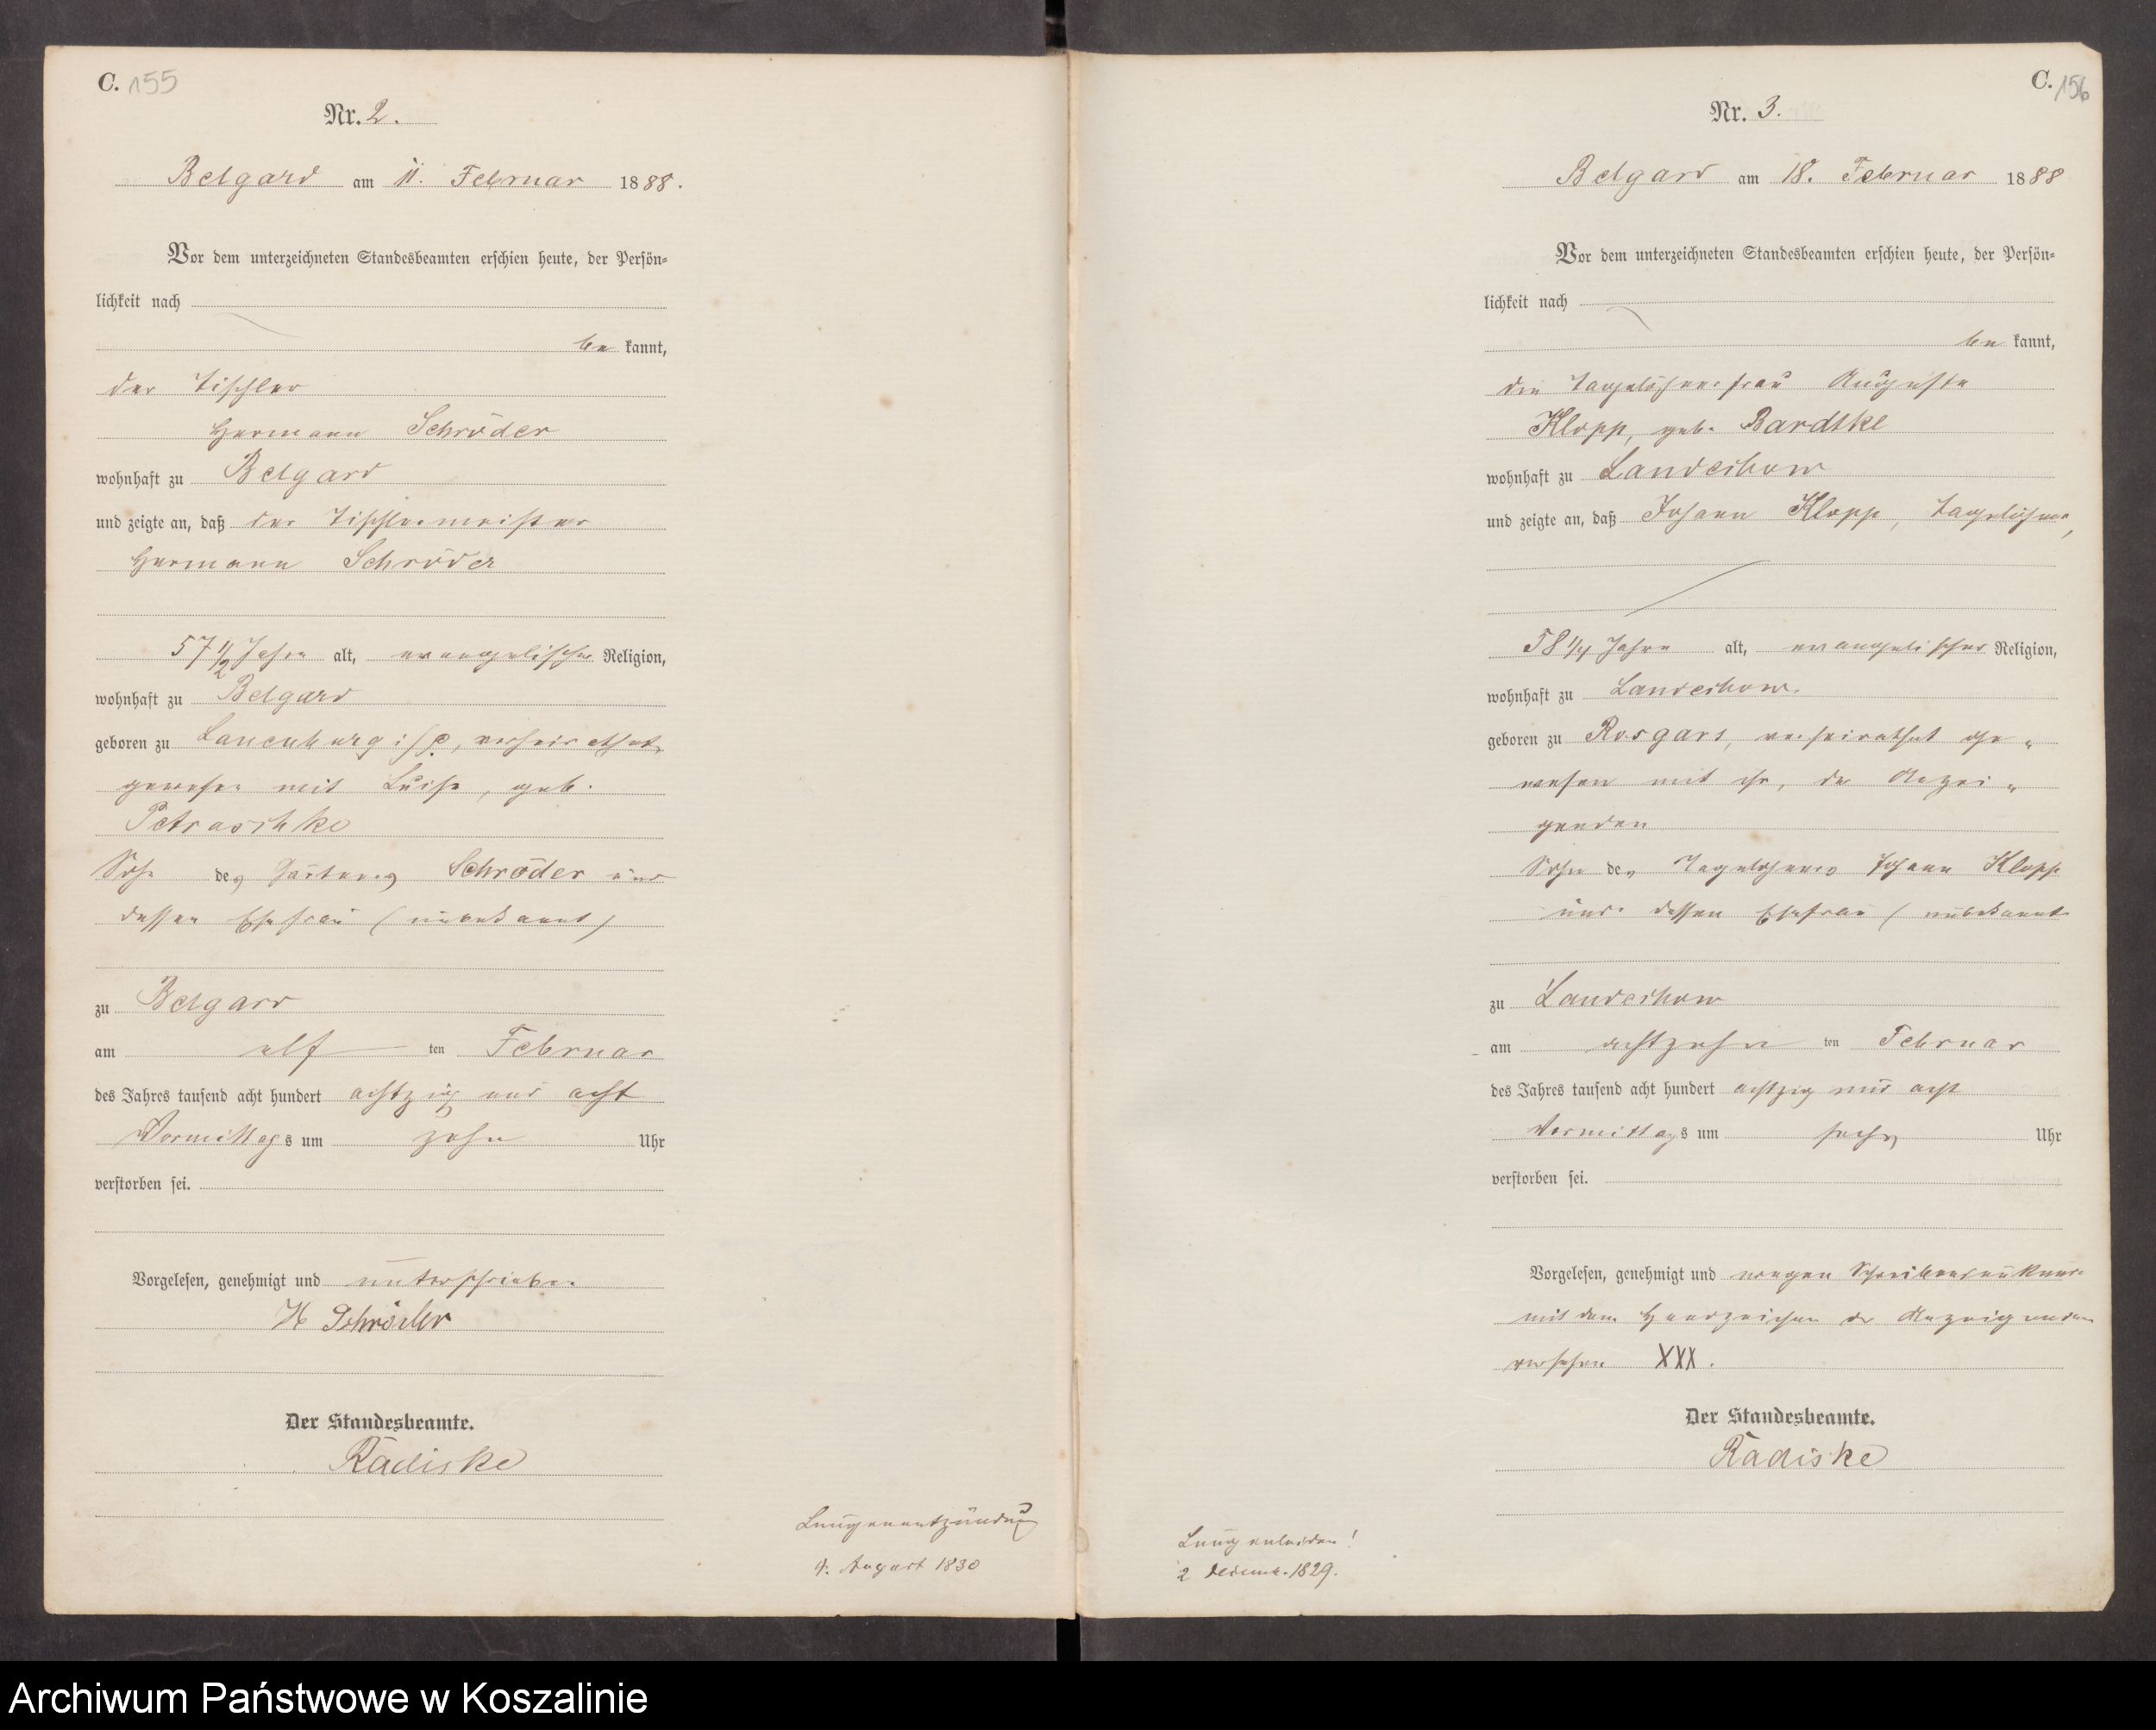 C. 155
Nr. 2.
Belgard am 11. Februar 1888.
Vor dem unterzeichneten Standesbeamten erschien heute, der Persön-
lichkeit nach
be kannt,
der Tischler
Hermann Schröder
wohnhaft zu Belgard
und zeigte an, daß der Tischlermeister
Hermann Schröder
57 1/2 Jahre alt, evangelischer Religion,
wohnhaft zu Belgard
geboren zu Lauenburg i/P., verheirathet
gewesen mit Luise, geb.
Petraschke
Sohn des Gärtners Schröder und
dessen Ehefrau (unbekannt)
zu Belgard
am elf ten Februar
des Jahres tausend acht hundert achtzig und acht
Vormittags um zehn Uhr
verstorben sei.
Vorgelesen, genehmigt und unterschrieben
H Schröder
Der Standesbeamte.
Radiske
Lungenentzündung
4. August 1830
C. 156
Nr. 3.
Belgard am 18. Februar 1888
Vor dem unterzeichneten Standesbeamten erschien heute, der Persön-
lichkeit nach
be kannt,
die Tagelöhnerfrau Auguste
Klopp, geb. Bardtke
wohnhaft zu Landechow
und zeigte an, daß Johann Klopp, Tagelöhner,
58 1/4 Jahre alt, evangelischer Religion,
wohnhaft zu Landechow.
geboren zu Rosgars, verheirathet ge-
wesen mit ihr, der Anzei-
genden
Sohn des Tagelöhners Johann Klopp
und dessen Ehefrau (unbekannt
zu Landechow
am achtzehn ten Februar
des Jahres tausend acht hundert achtzig und acht
Vormittags um sechs Uhr
verstorben sei.
Vorgelesen, genehmigt und wegen Schreibensunkunde
mit dem Handzeichen der Anzeigenden
versehen XXX.
Der Standesbeamte.
Radiske
Lungenleiden!
2 Dezemb. 1829.
Archiwum Państwowe w Koszalinie